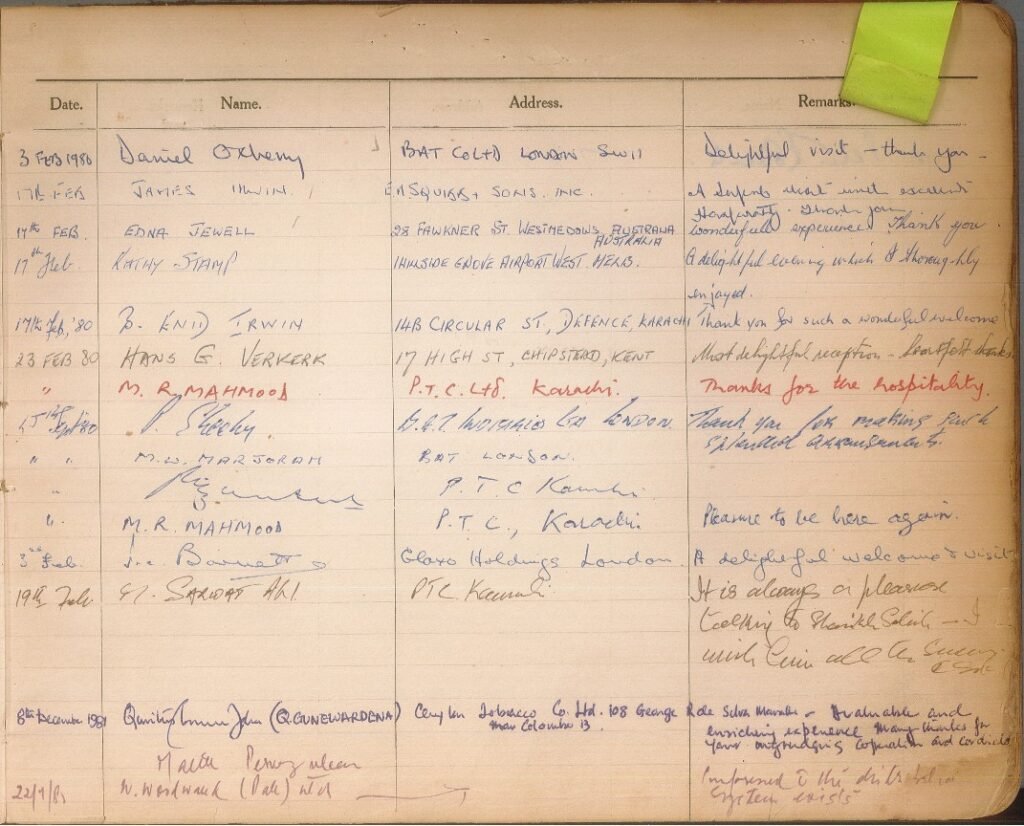 Date. Name. Address. Remarks.
3 FEB 1980 Daniel Oxberry BAT Co LTD LONDON SW11 Delightful visit – thank you –
17th FEB JAMES IRWIN. ER SQUIBB & SONS. INC. A superb visit with excellent
Hospitality. Thank you
17th FEB. EDNA JEWELL 28 FAWKNER ST. WESTMEADOWS, AUSTRALIA wonderful experience Thank you
AUSTRALIA
17th Feb. KATHY STAMP 1 HILLSIDE GROVE AIRPORT WEST. MELB. A delightful evening which I thoroughly
enjoyed.
17th Feb, '80 B. ENID IRWIN 14B CIRCULAR ST., DEFENCE, KARACHI Thank you for such a wonderful welcome
23 FEB 80 HANS G. VERKERK 17 HIGH ST, CHIPSTEAD, KENT Most delightful reception – heartfelt thanks.
" M. R. MAHMOOD P.T.C. Ltd. Karachi. Thanks for the hospitality.
Sept 80 P. Sheehy B.A.T INDUSTRIES LONDON Thank you for making such
splendid arrangements.
" " M.W. MARJORAM BAT LONDON.
" P.T.C Karachi.
" M. R. MAHMOOD P.T.C., Karachi Pleasure to be here again.
3rd Feb. Barnett Glaxo Holdings London. A delightful welcome & visit
19th Feb. SARWAT ALI PTC. Karachi It is always a pleasure
talking to Shaikh – I
wish him all the
8th December 1981 (Q. GUNEWARDENA) Ceylon Tobacco Co. Ltd. 108 George R de Silva Mawatha – A valuable and
Colombo 13. enriching experience Many thanks for
your ungrudging cooperation and
W. Woodward (Pak) Ltd
22/9/81 the
system exists